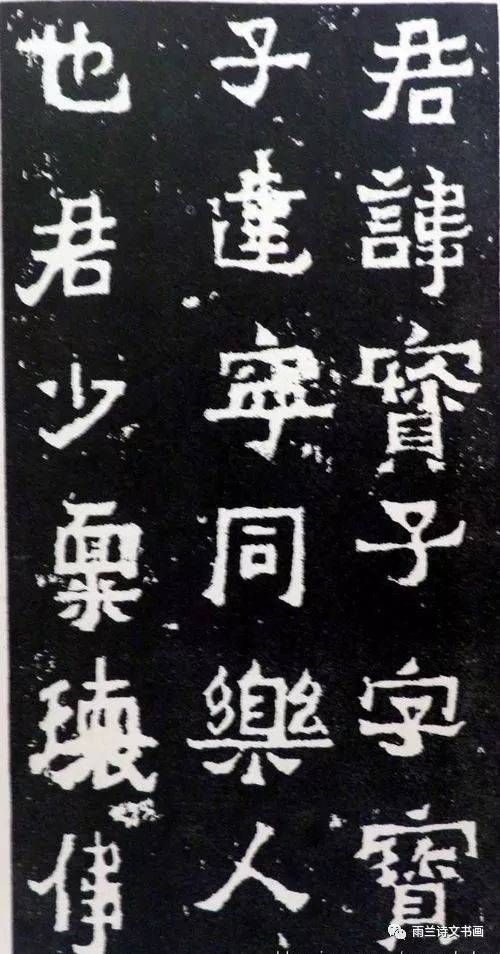 君諱寳子字寳
子達寧同樂人
也君少稟瓌偉
雨兰诗文书画